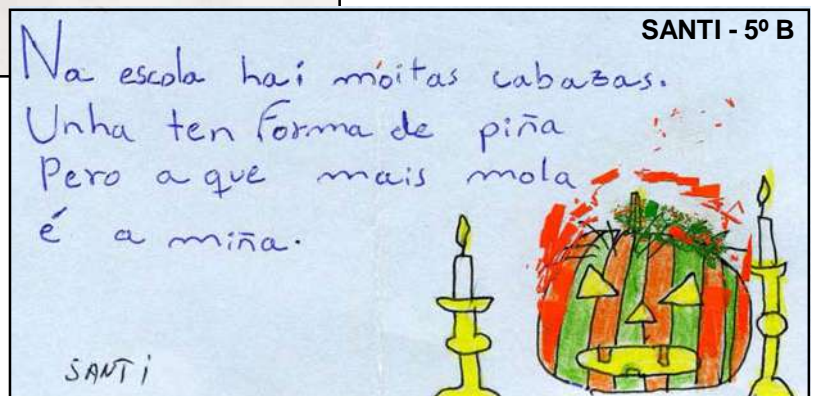 SANTI - 5º B
Na escola hai moitas cabazas.
Unha ten forma de piña
Pero a que mais mola
é a miña.
SANTI